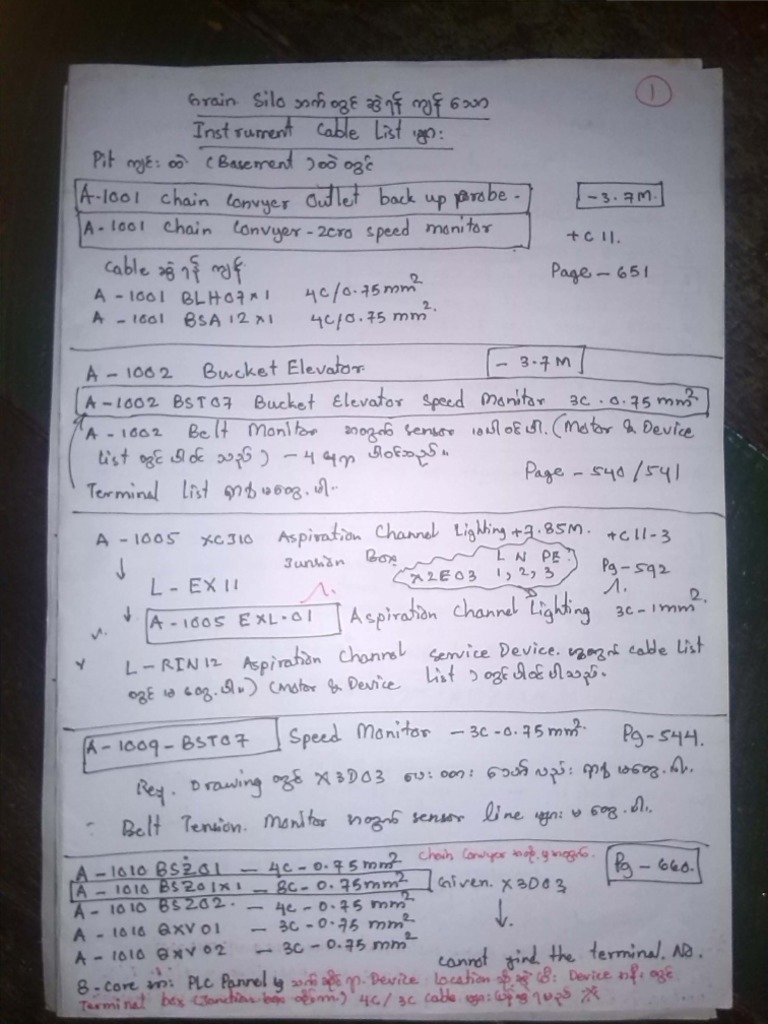 1
Grain Silo ဘက်တွင် ဆွဲရန် ကျန်သော
Instrument Cable List များ
Pit ကျင်းထဲ (Basement) ထဲတွင်
A-1001 Chain Convyer Outlet back up probe.
-3.7M.
A-1001 Chain Convyer-zero speed monitor
+C11.
Cable ဆွဲရန် ကျန်
Page-651
A-1001 BLH07x1 4C/0.75mm²
A-1001 BSA12x1 4C/0.75mm².
A-1002 Bucket Elevator
-3.7M
A-1002 BST07 Bucket Elevator Speed Monitor 3C-0.75mm²
A-1002 Belt Monitor အတွက် sensor မပါဝင်ပါ. (Motor & Device
List တွင် ပါဝင်သည်) -4 ခု ပါဝင်သည်။
Page-540/541
Terminal List ရှာမတွေ့ပါ..
A-1005 XC310 Aspiration Channel Lighting +7.85M. +C11-3
Junction Box
L N PE
X2E03 1, 2, 3
Pg-592
L-EX11
A-1005 EXL-01 Aspiration Channel Lighting 3C-1mm².
L-RIN12 Aspiration Channel service Device. အတွက် cable List
တွင် မတွေ့ပါ။) (Motor & Device List) တွင်ပါဝင်ပါသည်.
A-1009-BST07 Speed Monitor -3C-0.75mm². Pg-544.
Drawing တွင် X3D03 ပေးထားသော်လည်း ရှာမတွေ့ပါ.
Belt Tension. Monitor အတွက် sensor line များ မတွေ့ပါ.
A-1010 BSZ01 - 4C-0.75mm² Chain Convyer
Pg-660.
A-1010 BSZ01x1 - 8C-0.75mm² Given. X3D03
A-1010 BSZ02. - 4C-0.75mm²
A-1010 QXV01 - 3C-0.75mm²
A-1010 QXV02 - 3C-0.75mm²
cannot find the terminal. No.
8-core အား PLC Pannel မှ သက်ဆိုင်ရာ Device Location သို့ ဆွဲပြီး Device အနီးတွင်
Terminal box (Junction box) 4C/3C Cable များ